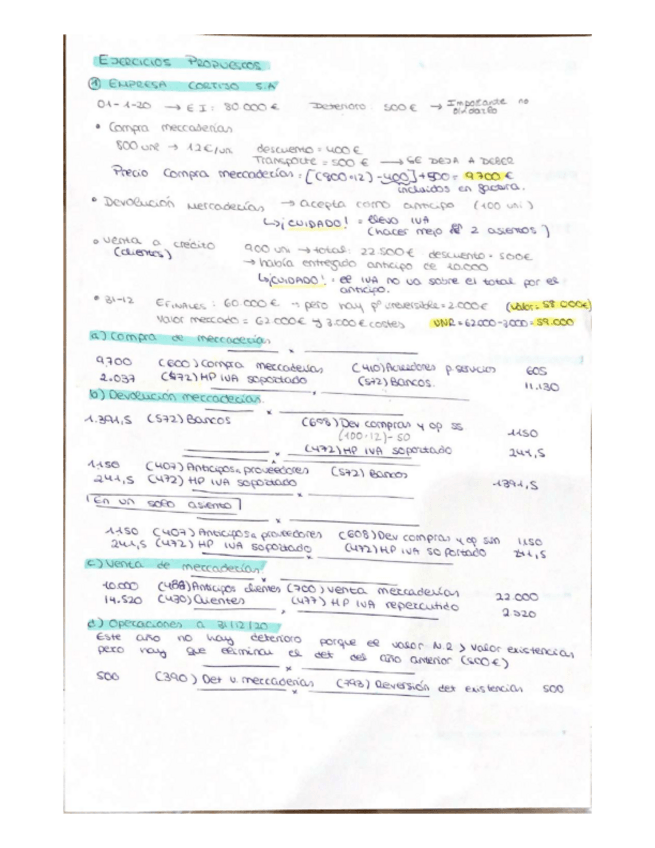 EJERCICIOS PROPUESTOS
① EMPRESA CORTIJO S.A
01-1-20 → EI: 80 000 € Deterioro: 500 € → Importante no olvidarlo
• Compra mercaderías
800 uni → 12€/un. descuento = 400 €
Transporte = 500 € → SE DEJA A DEBER
Precio compra mercaderías = [(800·12) - 400] + 500 = 9700 €
incluidos en factura.
• Devolución mercaderías → acepta como anticipo (100 uni)
↳ ¡CUIDADO! = llevo IVA
(hacer mejor 2 asientos)
• Venta a crédito 900 uni → total: 22 500 € descuento = 500€
(clientes) → había entregado anticipo de 10.000
↳ ¡CUIDADO! = el IVA no va sobre el total por el anticipo.
• 31-12 Efinales: 60.000 € → pero hay pª irreversible = 2.000 € (valor = 58 000€)
Valor mercado = 62 000 € y 3.000 € costes VNR = 62000 - 3000 = 59.000
a) Compra de mercaderías
x
9.700 (600) Compra mercaderías (410) Acreedores p. servicio 605
2.037 (472) HP IVA soportado (572) Bancos. 11.130
b) Devolución mercaderías.
x
1.391,5 (572) Bancos (608) Dev compras y op ss 1150
(100·12) - 50
(472) HP IVA soportado 241,5
x
1150 (407) Anticipos a proveedores (572) Bancos 1391,5
241,5 (472) HP IVA soportado
¡En un solo asiento!
x
1150 (407) Anticipos a proveedores (608) Dev compras y op sim 1150
241,5 (472) HP IVA soportado (472) HP IVA soportado 241,5
c) Venta de mercaderías
x
10.000 (438) Anticipos clientes (700) Venta mercaderías 22 000
14.520 (430) Clientes (477) HP IVA repercutido 2 520
d) Operaciones a 31/12/20
Este año no hay deterioro porque el valor N.R > valor existencias
pero hay que eliminar el det del año anterior (500 €)
x
500 (390) Det v. mercaderías (793) Reversión det existencias 500
x